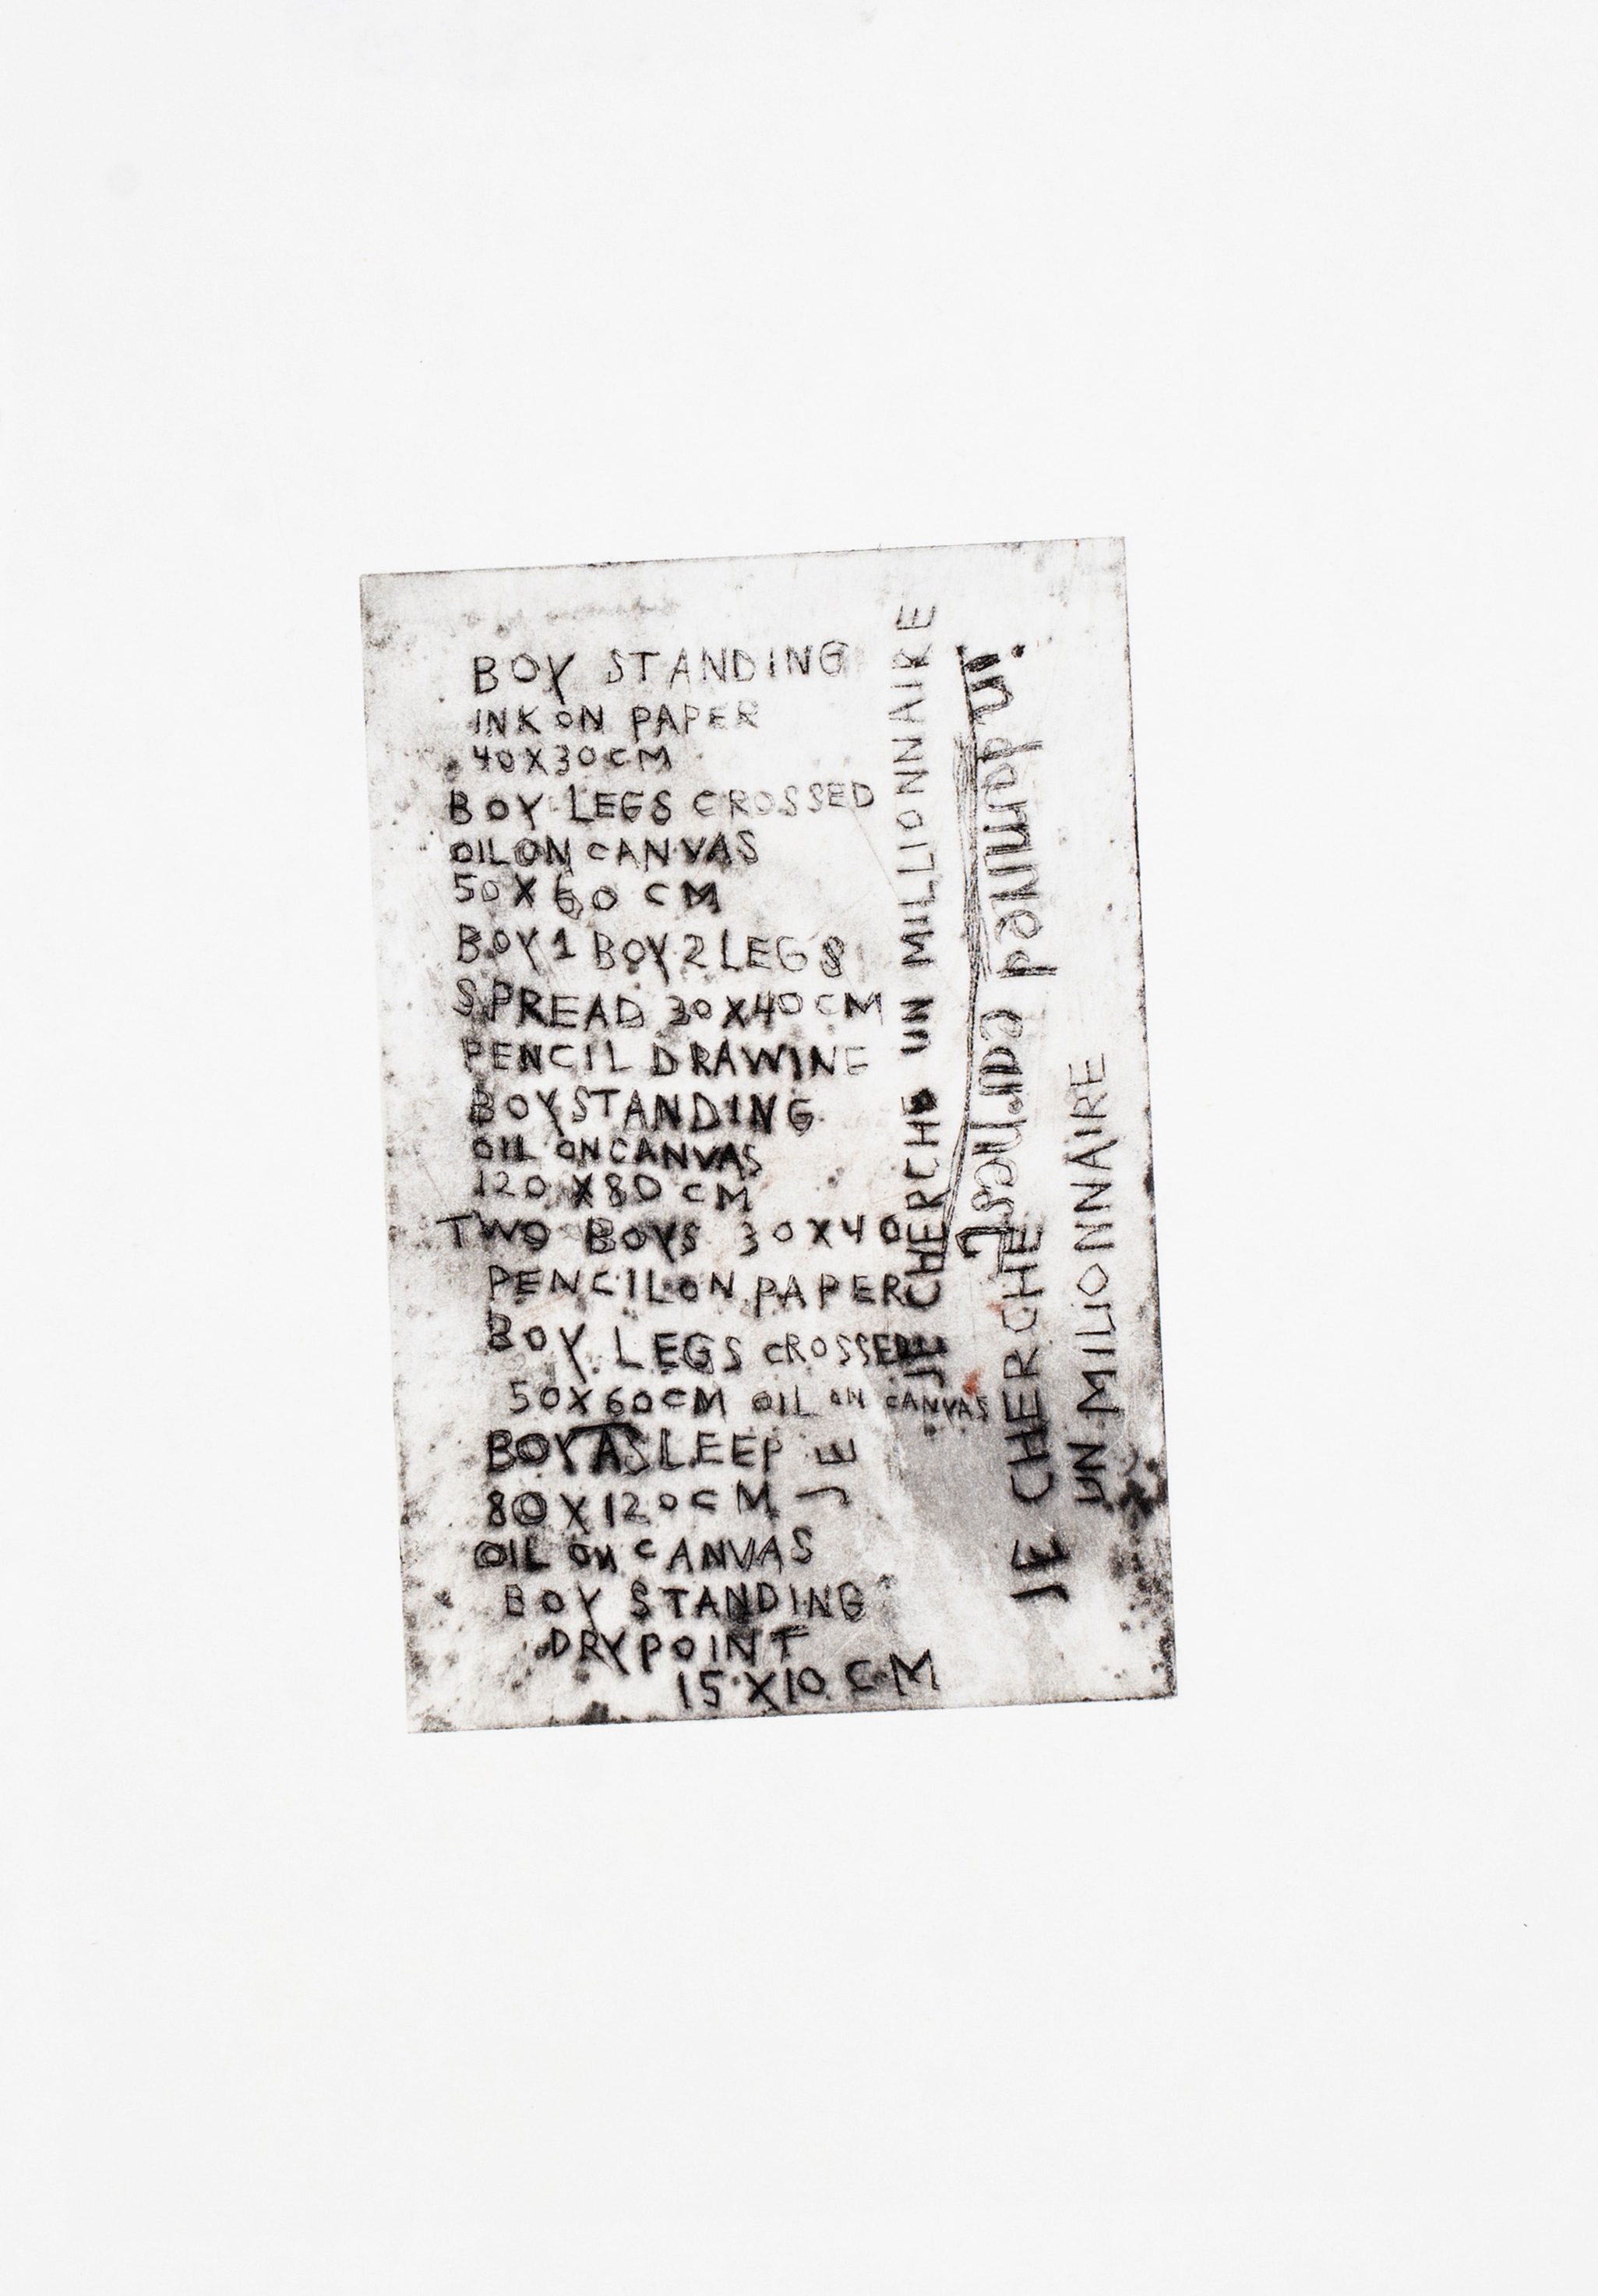 BOY STANDING
INK ON PAPER
40X30CM
BOY LEGS CROSSED
OIL ON CANVAS
50X60 CM
BOY 1 BOY 2 LEGS
SPREAD 30X40CM
PENCIL DRAWING
BOY STANDING
OIL ON CANVAS
120 X80 CM
TWO BOYS 30X40
PENCIL ON PAPER
BOY LEGS CROSSED
50X60CM OIL ON CANVAS
BOY ASLEEP
80X120CM
OIL ON CANVAS
BOY STANDING
DRYPOINT
15X10 CM
JE
JE CHERCHE UN MILLIONNAIRE
JE CHERCHE
UN MILIONNAIRE